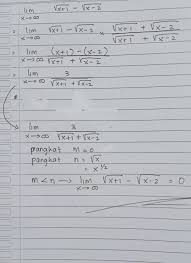 lim x→∞ √x+1 − √x-2
= lim x→∞ √x+1 − √x-2 × √x+1 + √x-2 / √x+1 + √x-2
= lim x→∞ (x+1) − (x-2) / √x+1 + √x-2
= lim x→∞ 3 / √x+1 + √x-2
lim x→∞ 3 / √x+1 + √x-2
pangkat m = 0
pangkat n = √x
= x^1/2
m < n → lim x→∞ √x+1 − √x-2 = 0